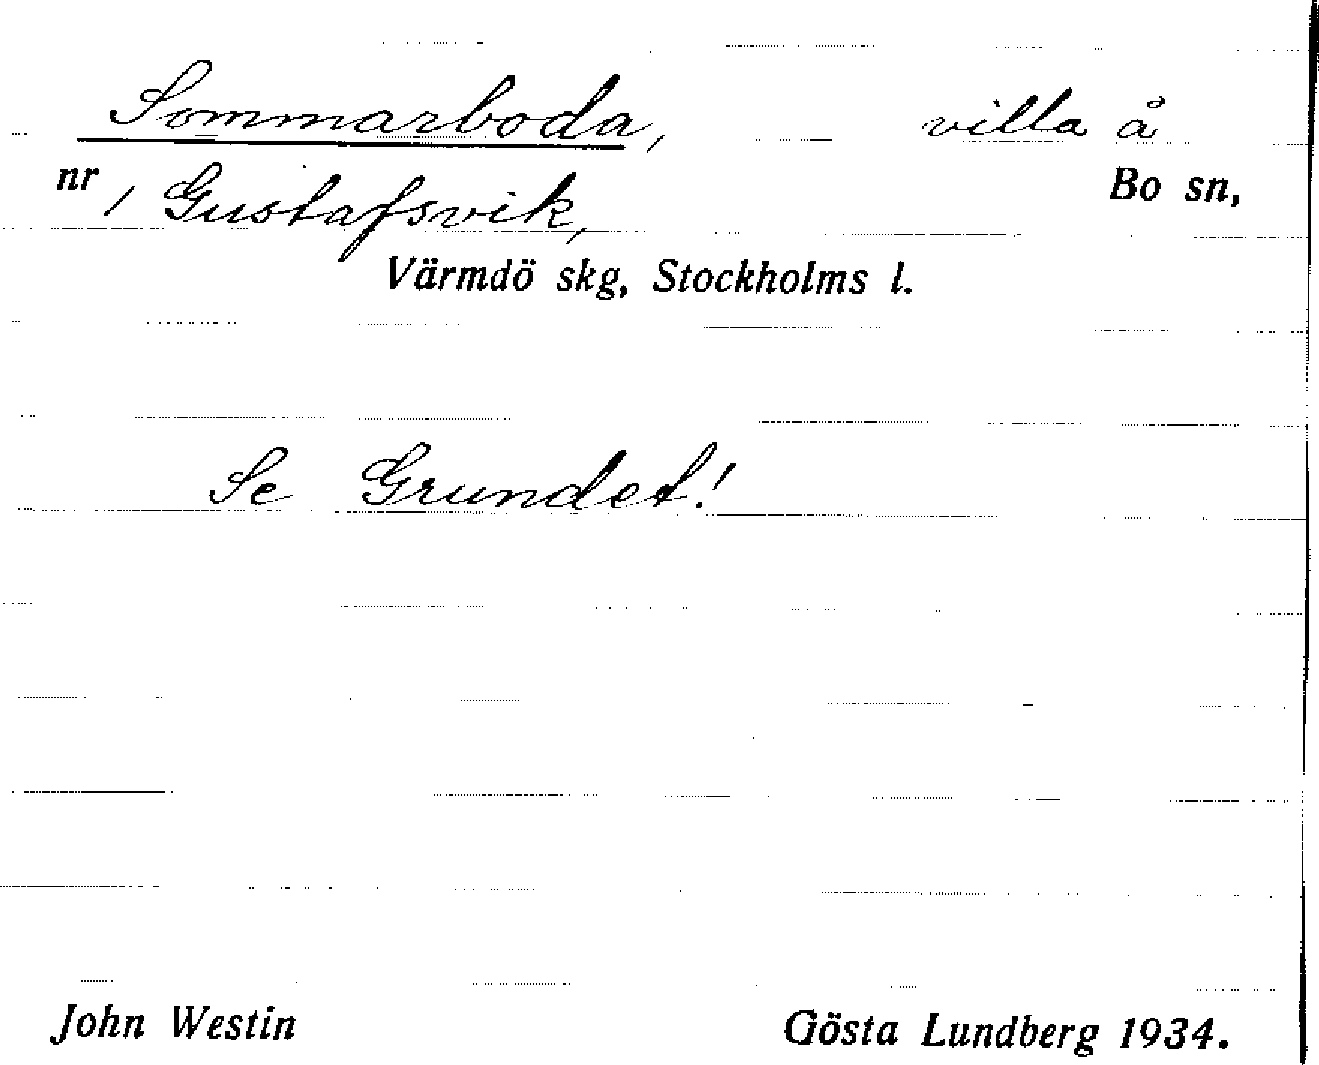 Sommarboda, villa å
nr 1 Gustafsvik, Bo sn,
Värmdö skg, Stockholms l.
Se Grundet!
John Westin Gösta Lundberg 1934.